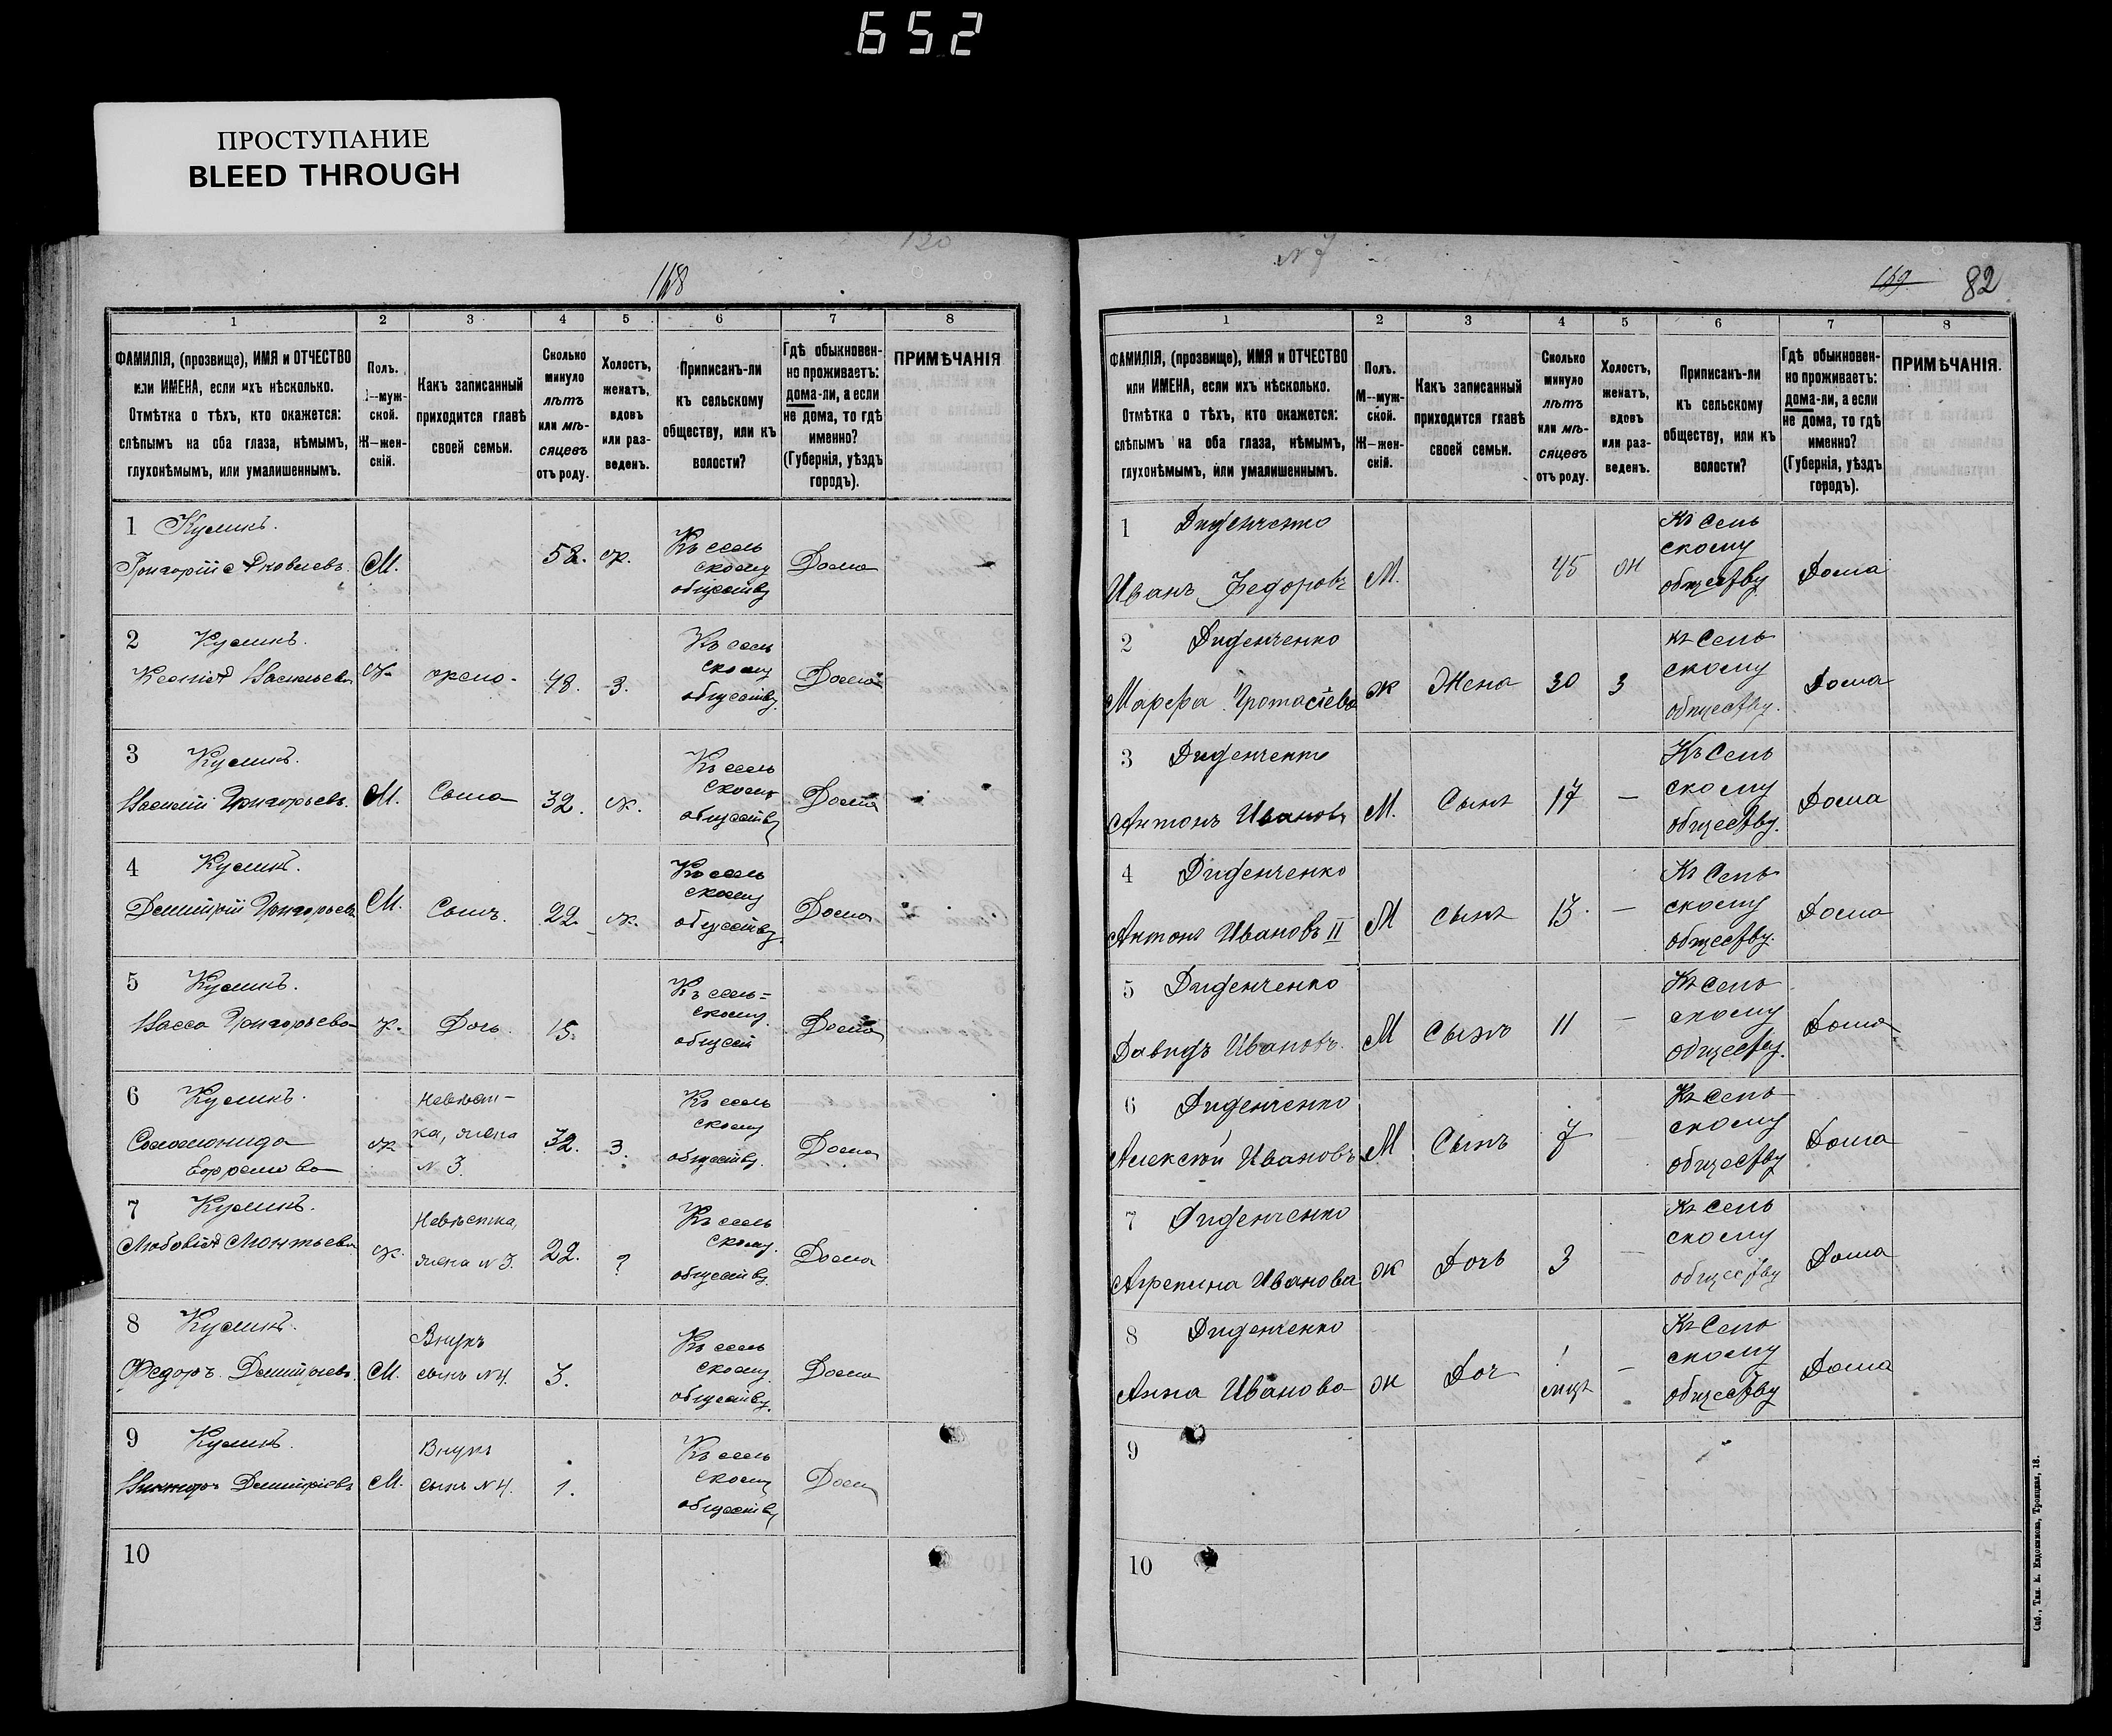 652
ПРОСТУПАНИЕ
BLEED THROUGH
168
1 2 3 4 5 6 7 8
ФАМИЛІЯ, (прозвище), ИМЯ и ОТЧЕСТВО или ИМЕНА, если ихъ нѣсколько. Отмѣтка о тѣхъ, кто окажется: слѣпымъ на оба глаза, нѣмымъ, глухонѣмымъ, или умалишеннымъ.
Полъ. М—мужской. Ж—женскій.
Какъ записанный приходится главѣ своей семьи.
Сколько минуло лѣтъ или мѣсяцевъ отъ роду.
Холостъ, женатъ, вдовъ или разведенъ.
Приписанъ-ли къ сельскому обществу, или къ волости?
Гдѣ обыкновенно проживаетъ: дома-ли, а если не дома, то гдѣ именно? (Губернія, уѣздъ городъ).
ПРИМѢЧАНІЯ
1 Куликъ. Григорій Яковлевъ. М. 58. ж. Къ сельскому обществу Дома
2 Куликъ. Васильева ж. жена 48. з. Къ сельскому обществу. Дома
3 Куликъ. Василій Григорьевъ. М. Сынъ 32. ж. Къ сельскому обществу Дома
4 Куликъ. Дмитрій Григорьевъ М. Сынъ. 22. ж. Къ сельскому обществу. Дома
5 Куликъ. Васса Григорьева ж. Дочь. 15. Къ сельскому общест Дома
6 Куликъ. Соломонида Ефремова ж Невѣстка, жена N 3. 32. з. Къ сельскому обществу. Дома
7 Куликъ. Леонтьева ж. Невѣстка, жена N 3. 22. ? Къ сельскому. обществу. Дома
8 Куликъ. Ѳедоръ Дмитріевъ. М. Внукъ сынъ N 4. 3. Къ сельскому обществу. Дома
9 Куликъ. Дмитріевъ М. Внукъ сынъ N 4. 1. Къ сельскому обществу Дома
10
N 7
169 82
1 2 3 4 5 6 7 8
ФАМИЛІЯ, (прозвище), ИМЯ и ОТЧЕСТВО или ИМЕНА, если ихъ нѣсколько. Отмѣтка о тѣхъ, кто окажется: слѣпымъ на оба глаза, нѣмымъ, глухонѣмымъ, или умалишеннымъ.
Полъ. М—мужской. Ж—женскій.
Какъ записанный приходится главѣ своей семьи.
Сколько минуло лѣтъ или мѣсяцевъ отъ роду.
Холостъ, женатъ, вдовъ или разведенъ.
Приписанъ-ли къ сельскому обществу, или къ волости?
Гдѣ обыкновенно проживаетъ: дома-ли, а если не дома, то гдѣ именно? (Губернія, уѣздъ городъ).
ПРИМѢЧАНІЯ.
1 Диденченко Иванъ Федоровъ М. 45 ж Къ Сельскому обществу Дома
2 Диденченко Марфа Протасіева ж Жена 30 з Къ Сельскому обществу. Дома
3 Диденченко Антонъ Ивановъ М. Сынъ 17 — Къ Сельскому обществу. Дома
4 Диденченко Антонъ Ивановъ II М сынъ 13. — Къ Сельскому обществу. Дома
5 Диденченко Давидъ Ивановъ. М Сынъ 11 — Къ Сельскому обществу. Дома
6 Диденченко Алексѣй Ивановъ М Сынъ 7 — Къ Сельскому обществу Дома
7 Диденченко Агрепина Иванова ж Дочь 3 — Къ Сельскому обществу Дома
8 Диденченко Анна Иванова ж Доч 1 мцъ — Къ Сельскому обществу Дома
9
10
Спб., Тип. Евдокимова, Троицкая, 18.